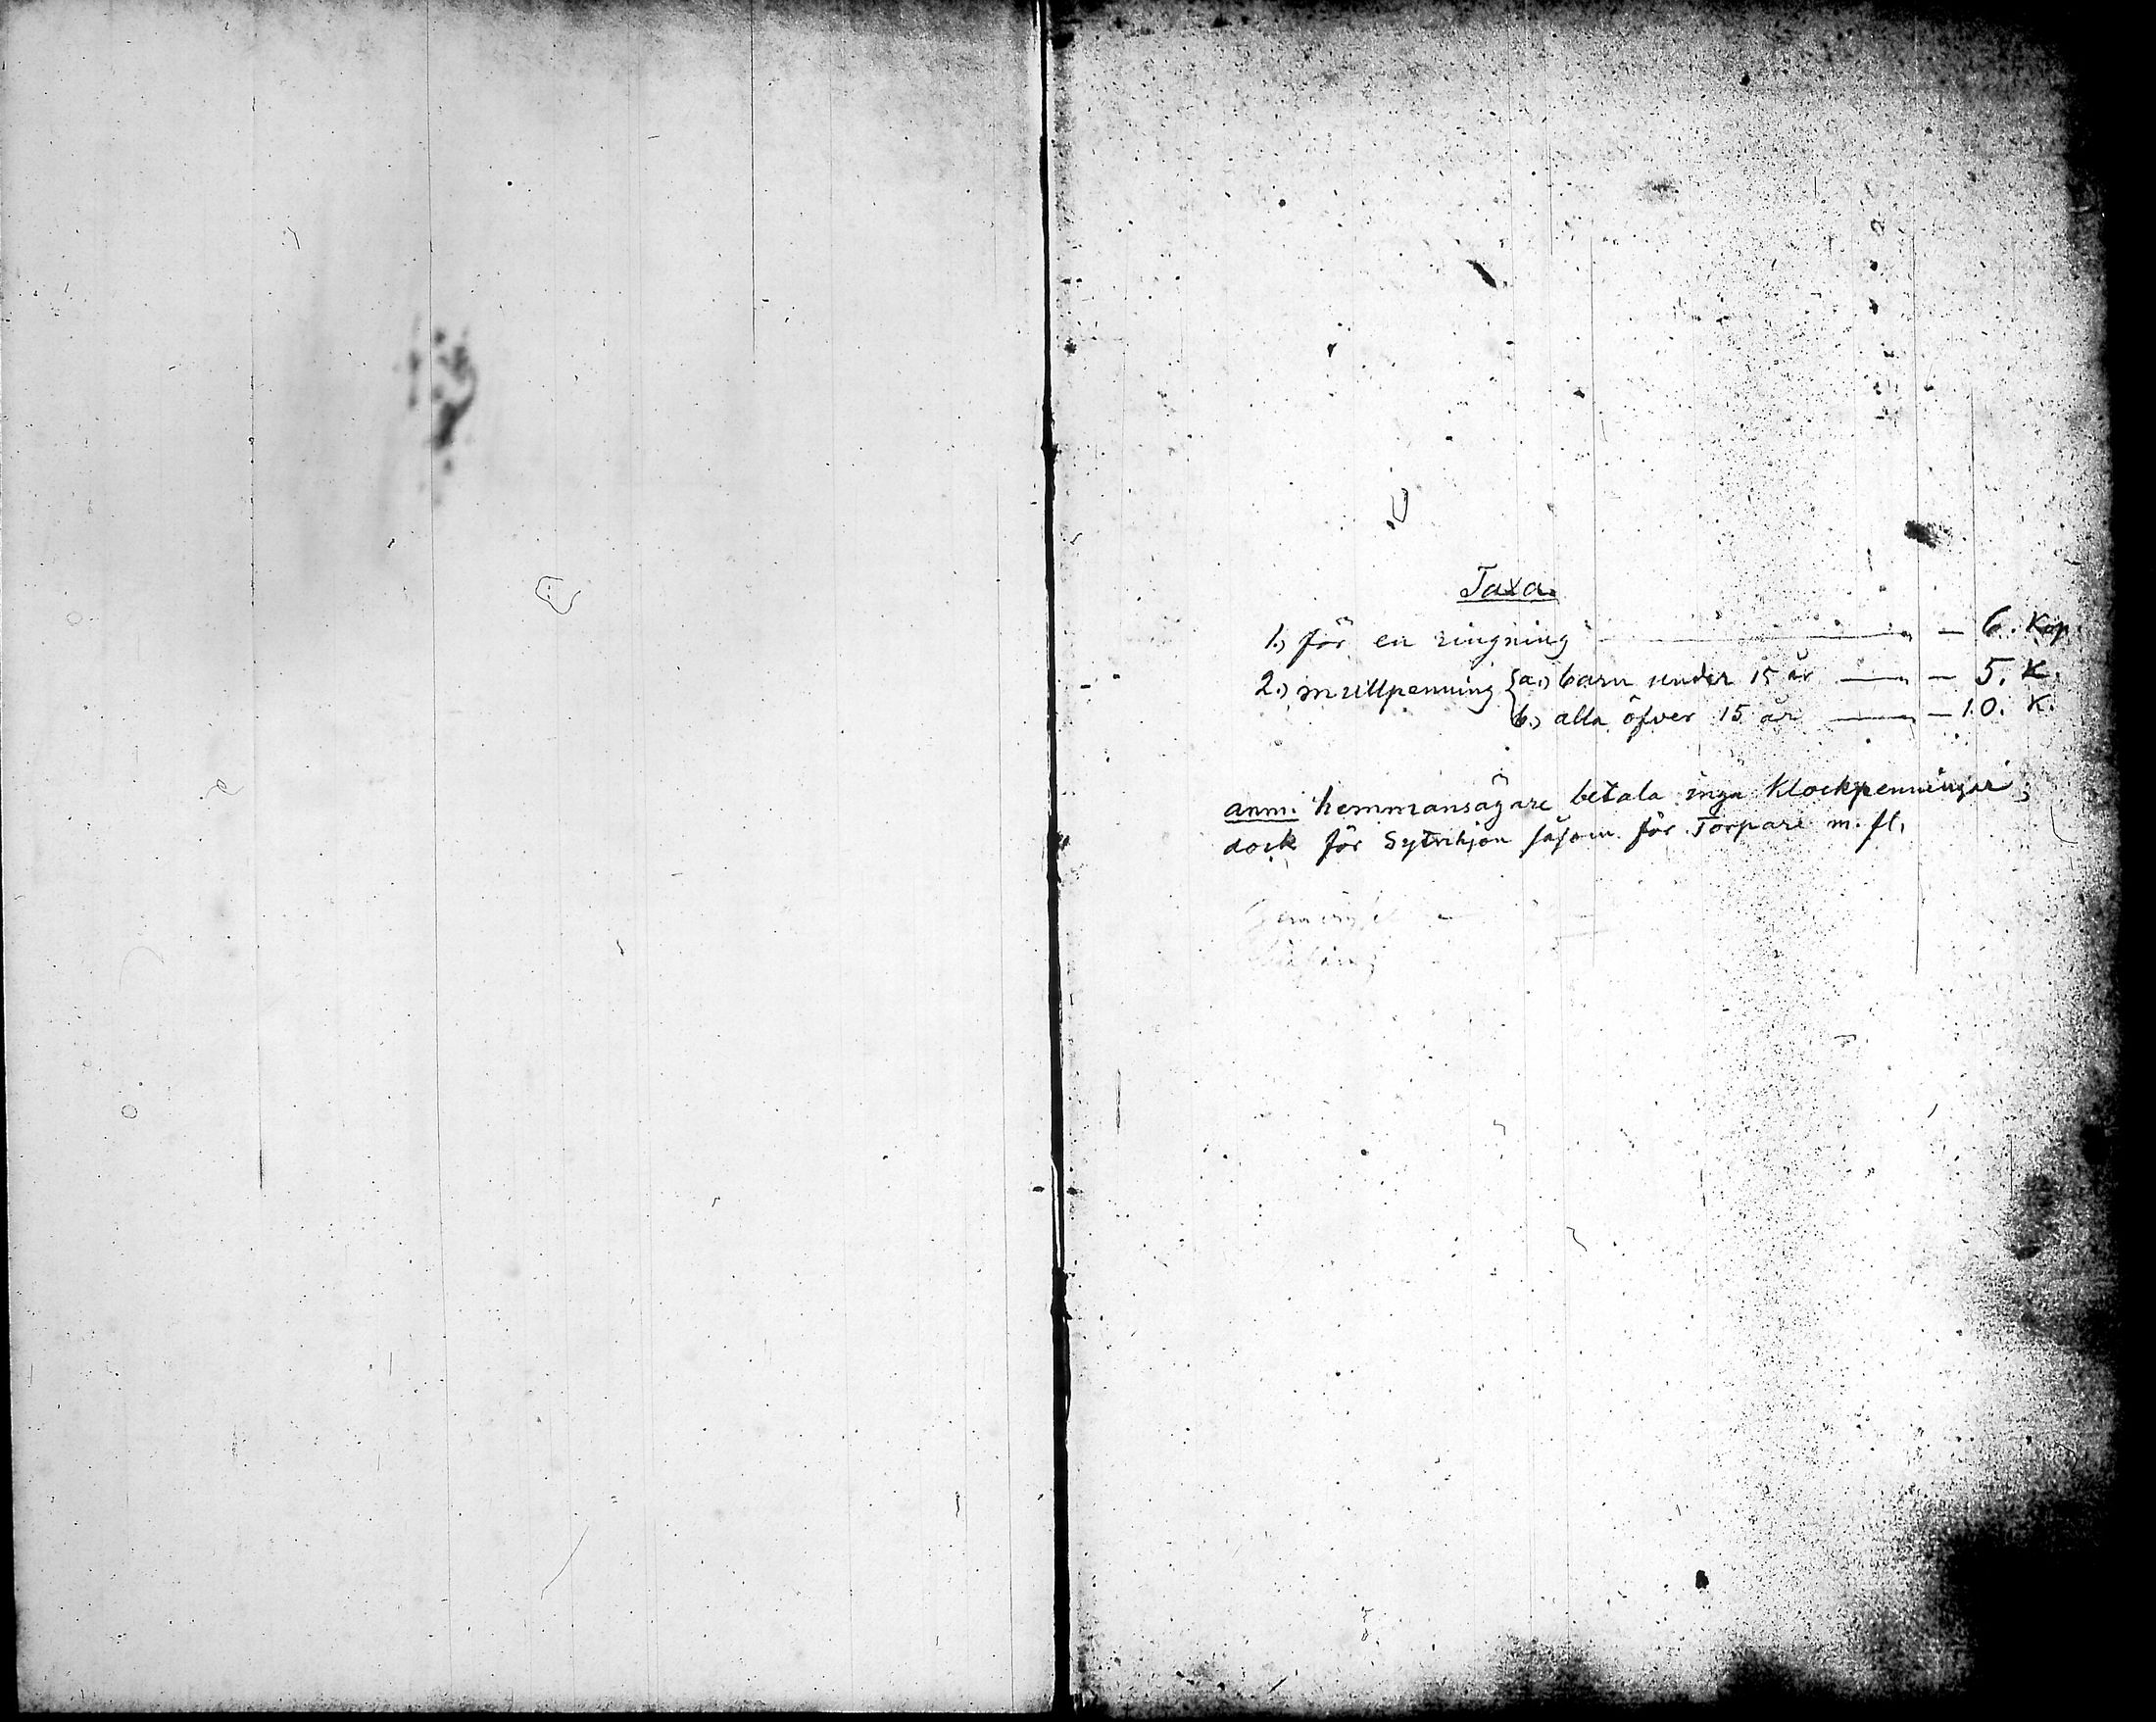 Taxa.
1.) för en ringning — — 6. Kop.
2.) mullpenning { a.) barn under 15 år — — 5. K.
b.) alla öfver 15 år — — 10. K.
anm: hemmansägare betala inga Klockpenningar;
dock för Sytnihjon såsom för Torpare m. fl.